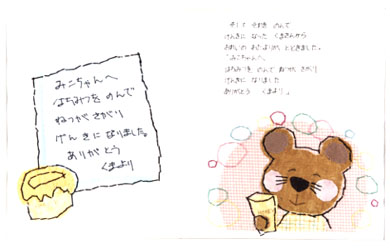 みこちゃんへ
はちみつを のんで
ねつが さがり
げんきに なりました。
ありがとう
くまより
そして
のんで
げんきに なった くまさんから
おれいの おたよりが とどきました。
「みこちゃんへ
はちみつを のんで ねつが さがり
げんきに なりました
ありがとう くまより」